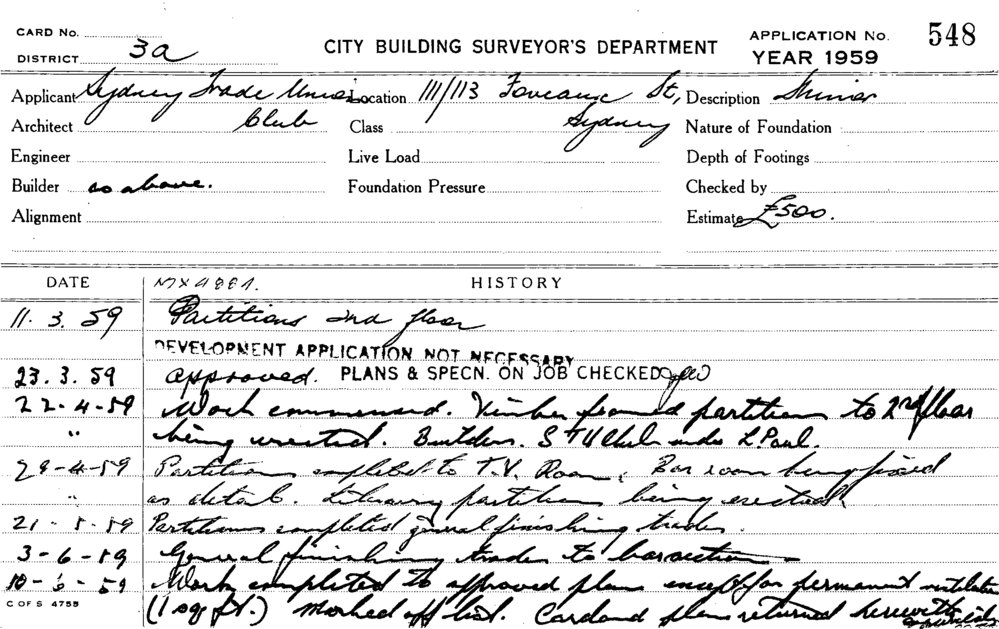 CARD No.
DISTRICT 3a
CITY BUILDING SURVEYOR'S DEPARTMENT
APPLICATION No. 548
YEAR 1959
Applicant Sydney Trade Union Location 111/113 Foveaux St, Description Minor
Architect Club Class Sydney Nature of Foundation
Engineer Live Load Depth of Footings
Builder as above. Foundation Pressure Checked by
Alignment Estimate £500.
DATE MX4884. HISTORY
11. 3. 59 Partitions 2nd floor
DEVELOPMENT APPLICATION NOT NECESSARY
23. 3. 59 Approved. PLANS & SPECN. ON JOB CHECKED
22-4-59 Work commenced. Timber framed partitions to 2nd floor
" being erected. Builders. S T U Club under L. Paul.
29-4-59 Partitions completed to T.V. Room, Bar room being fixed
" as detail. Library partitions being erected.
21-5-59 Partitions completed general finishing trades.
3-6-59 General finishing trades to bar section
10-6-59 Work completed to approved plans except for permanent ventilation
C OF S 4755
(1 sq ft.) Marked off list. Card and plans returned herewith